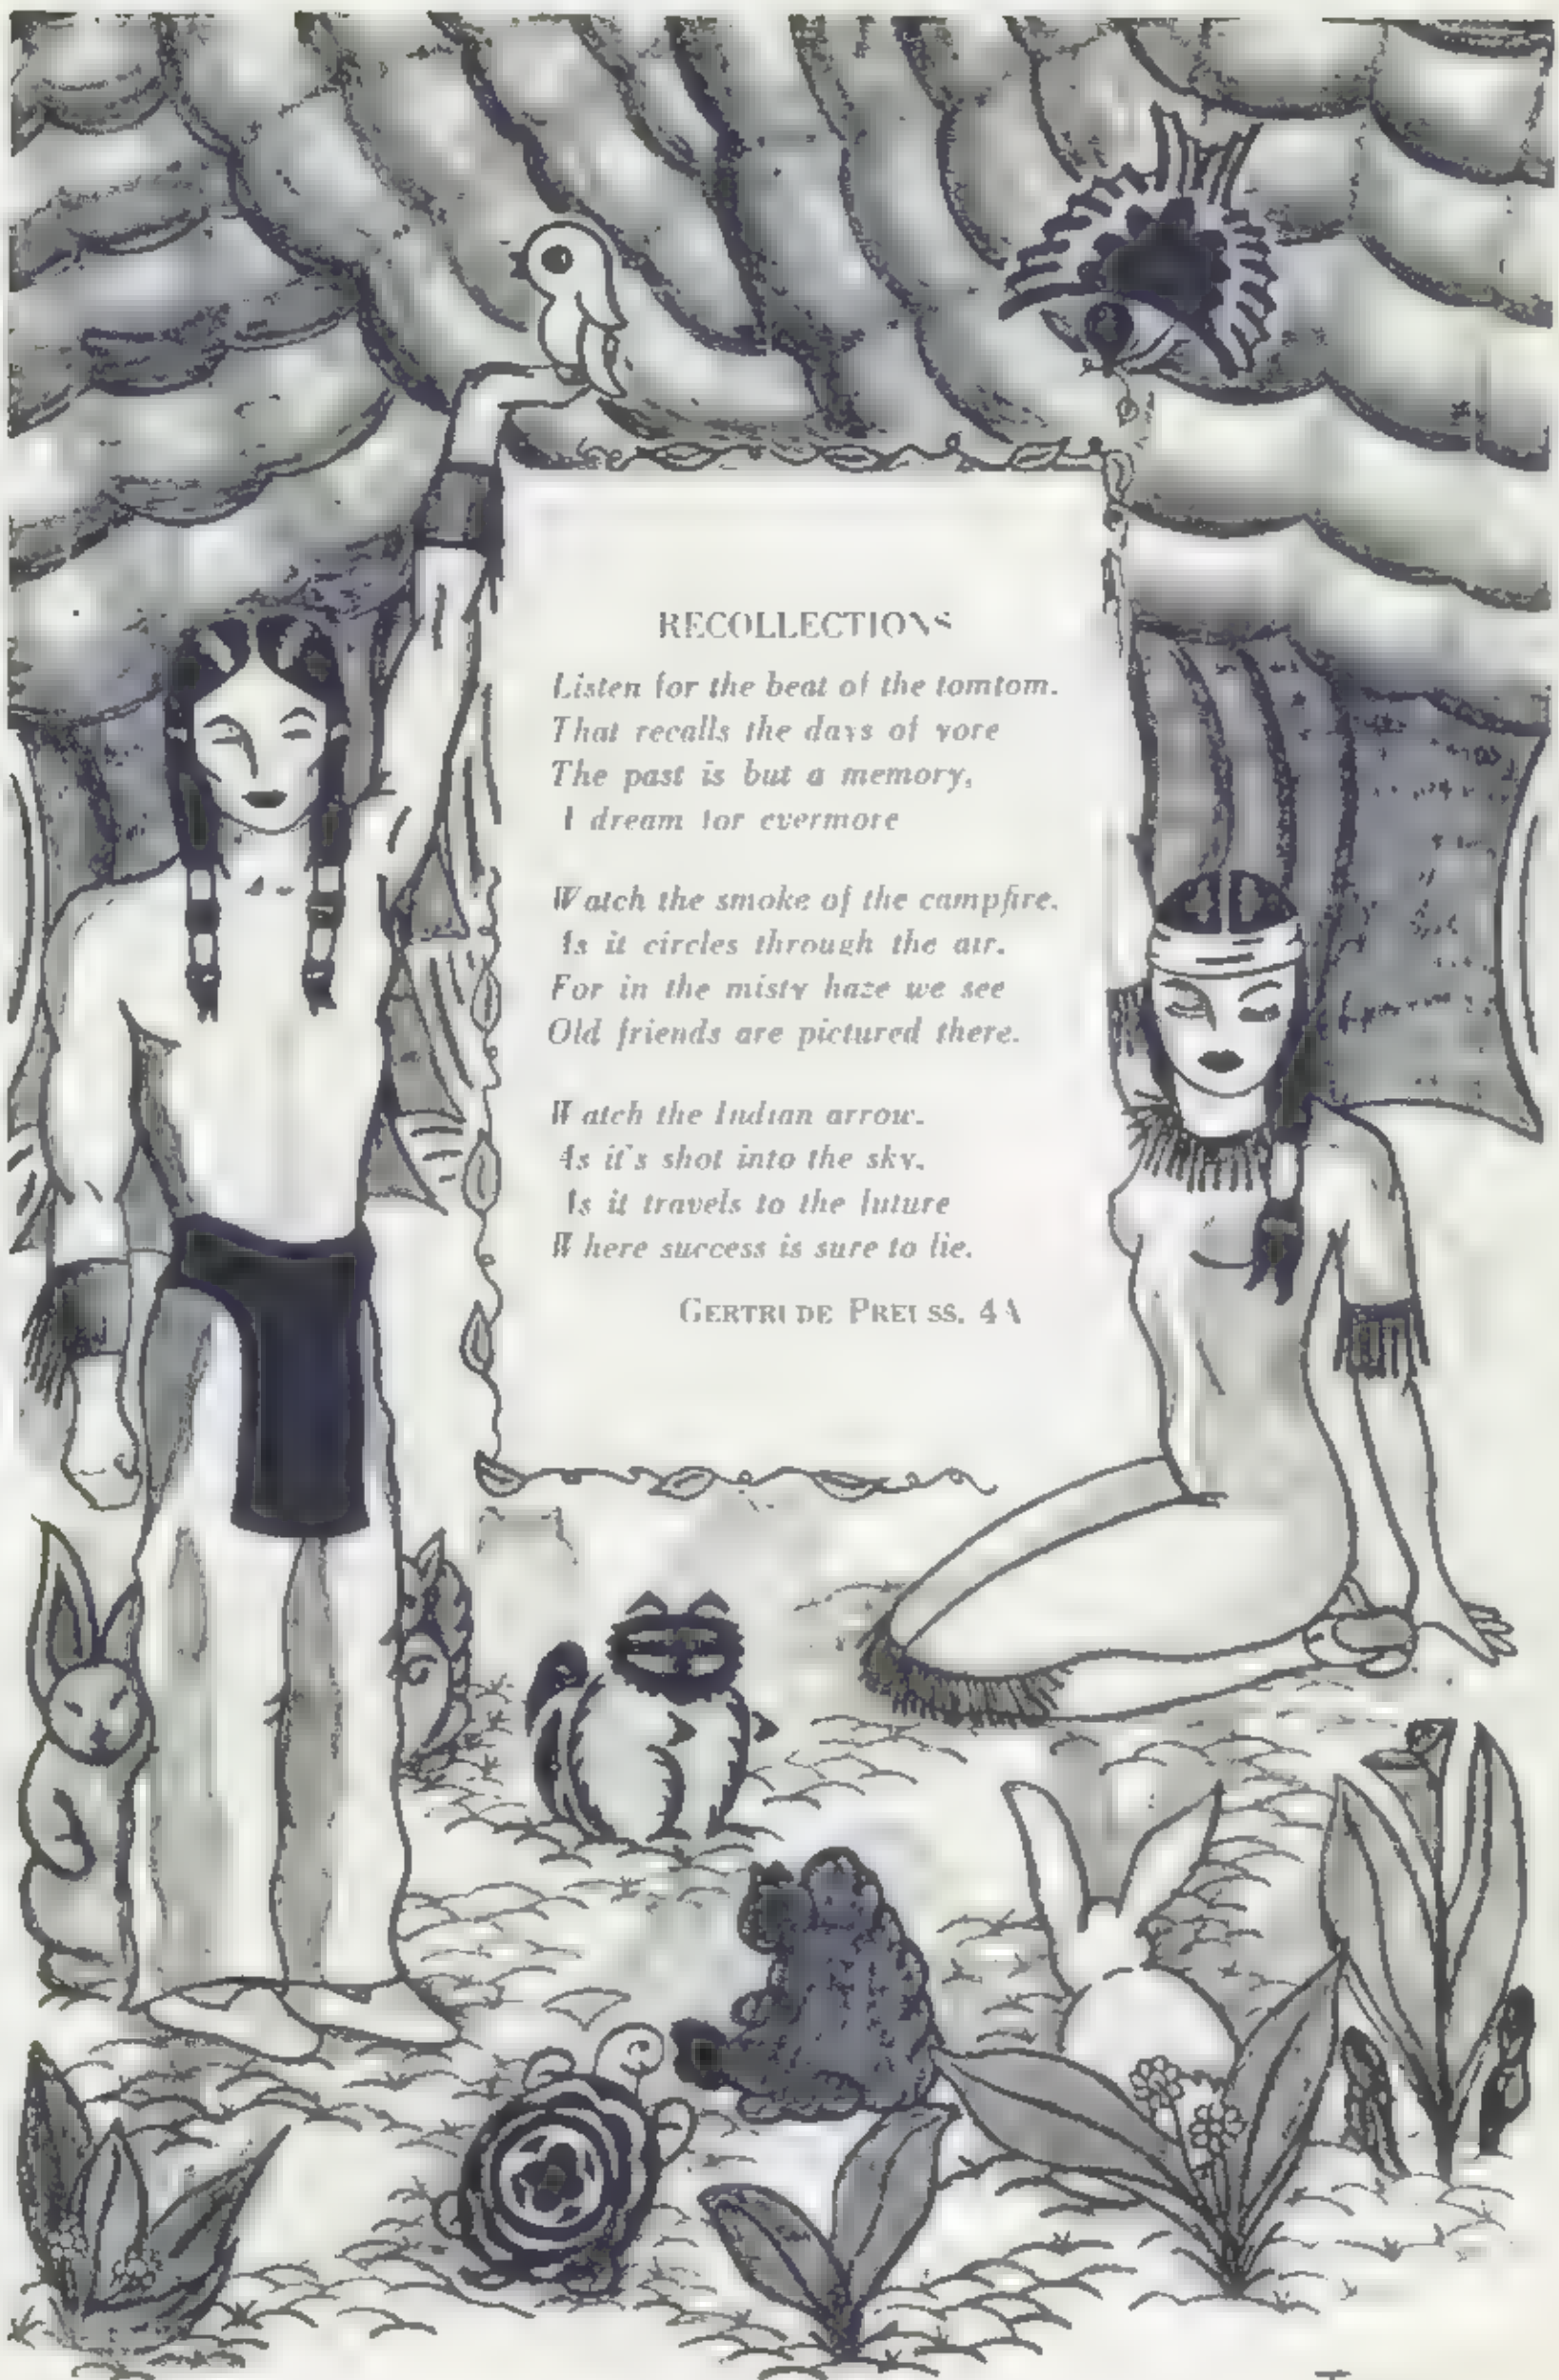 RECOLLECTIONS
Listen for the beat of the tomtom.
That recalls the days of yore
The past is but a memory,
I dream for evermore
Watch the smoke of the campfire.
As it circles through the air.
For in the misty haze we see
Old friends are pictured there.
Watch the Indian arrow.
As it's shot into the sky.
As it travels to the future
Where success is sure to lie.
GERTRUDE PREUSS, 4A